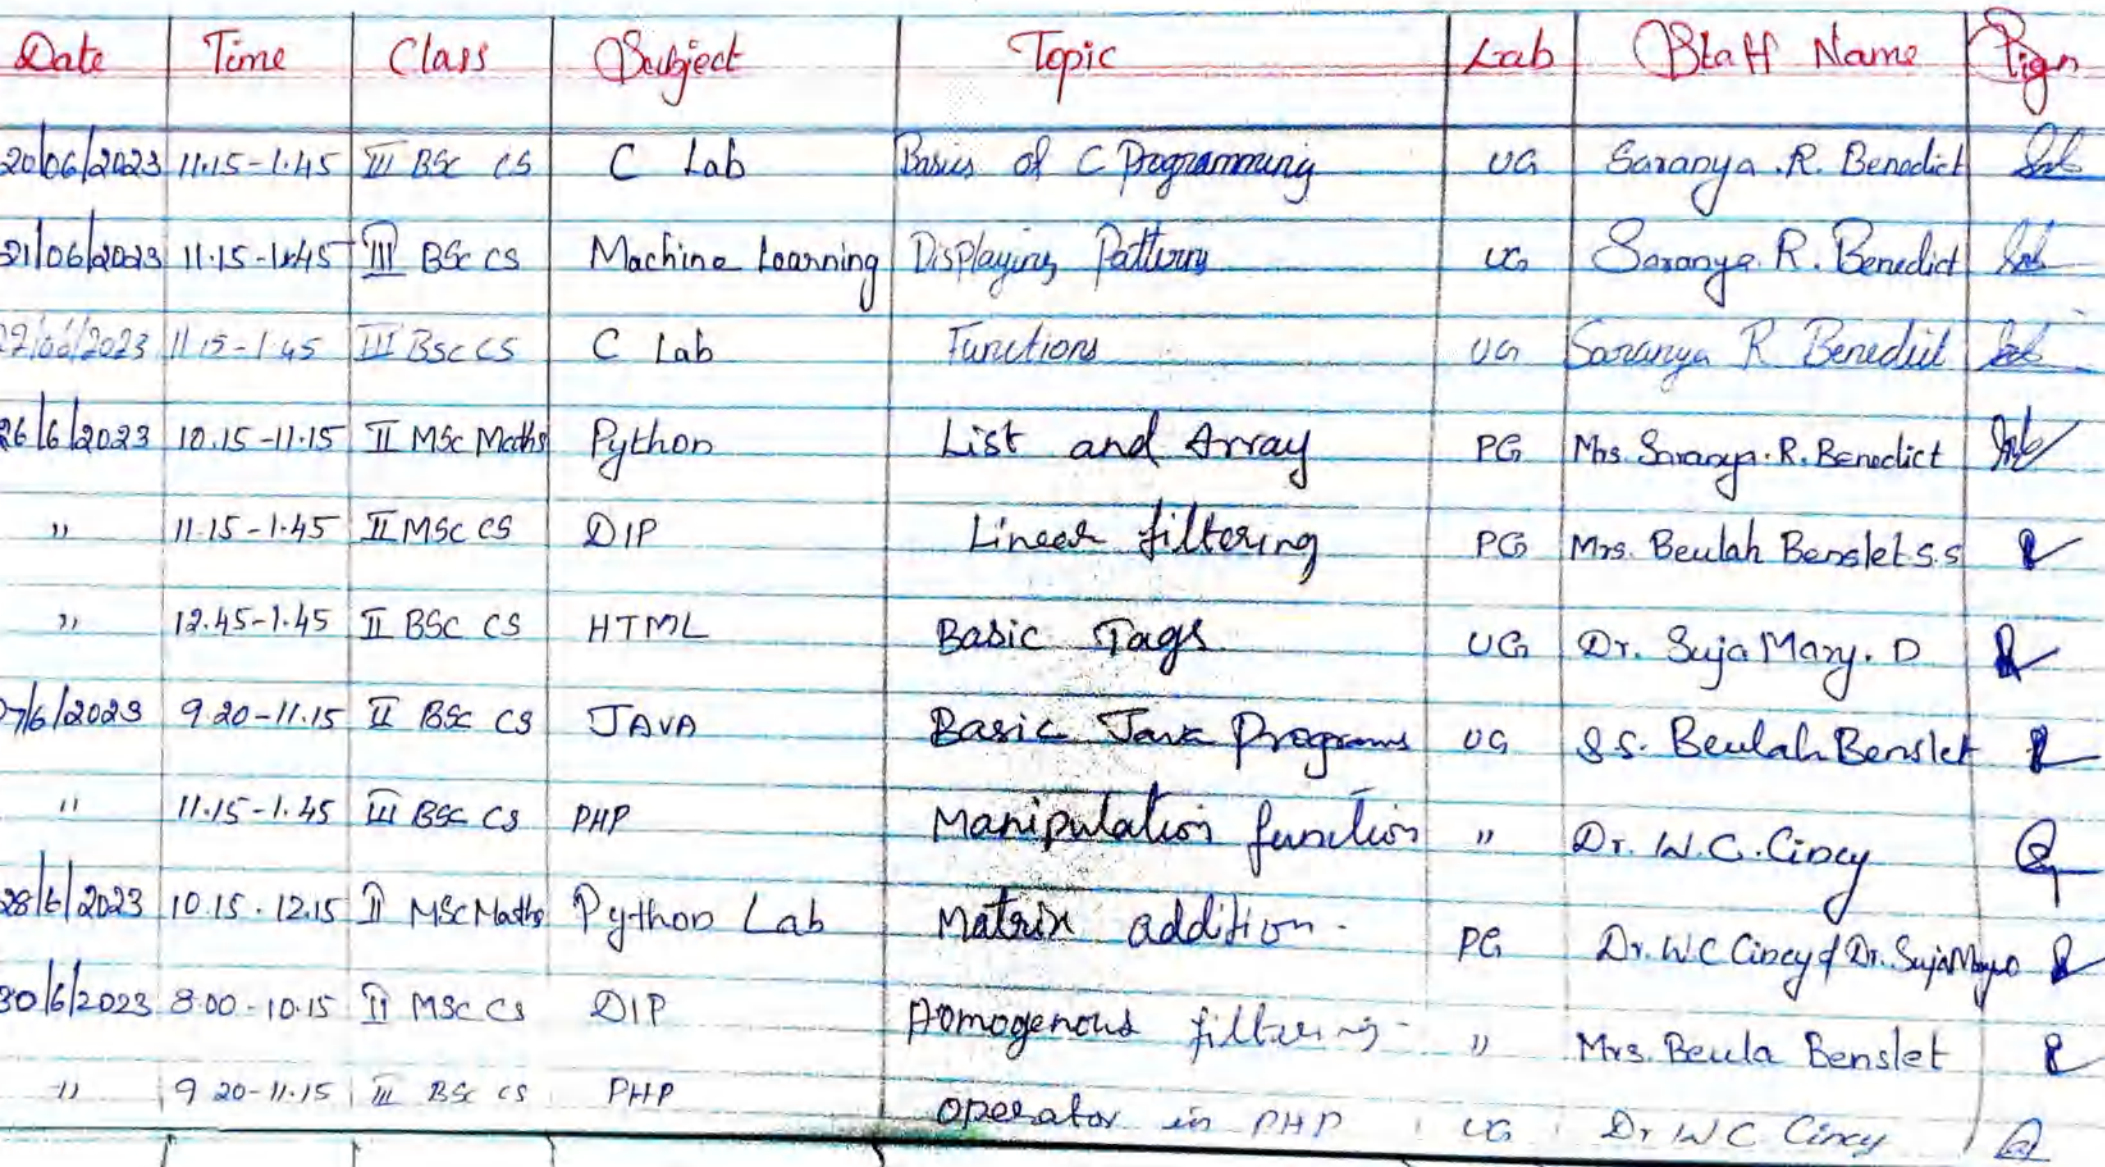 Date Time Class Subject Topic Lab Staff Name Sign
20/06/2023 11.15-1.45 III BSc CS C Lab Basics of C Programming UG Saranya .R. Benedict
21/06/2023 11.15-1.45 III BSc CS Machine Learning Displaying Patterns UG Saranya. R. Benedict
27/06/2023 11.15-1.45 III BSc CS C Lab Functions UG Saranya R Benedict
26/6/2023 10.15-11.15 II MSc Maths Python List and Array PG Mrs. Saranya.R.Benedict
" 11.15-1.45 II MSc CS DIP Linear filtering PG Mrs. Beulah Benslet S.S
" 12.45-1.45 II BSc CS HTML Basic Tags UG Dr. Suja Mary. D
7/6/2023 9.20-11.15 II BSc CS JAVA Basic Java Programs UG S S. Beulah Benslet
" 11.15-1.45 III BSc CS PHP Manipulation function " Dr. W.C. Cincy
28/6/2023 10.15-12.15 II MSc Maths Python Lab Matrix addition. PG Dr. W C Cincy & Dr. Suja Mary D
30/6/2023 8.00-10.15 II MSc CS DIP Homogenous filtering " Mrs. Beula Benslet
" 9 20-11.15 III BSc CS PHP operator in PHP UG Dr W C Cincy